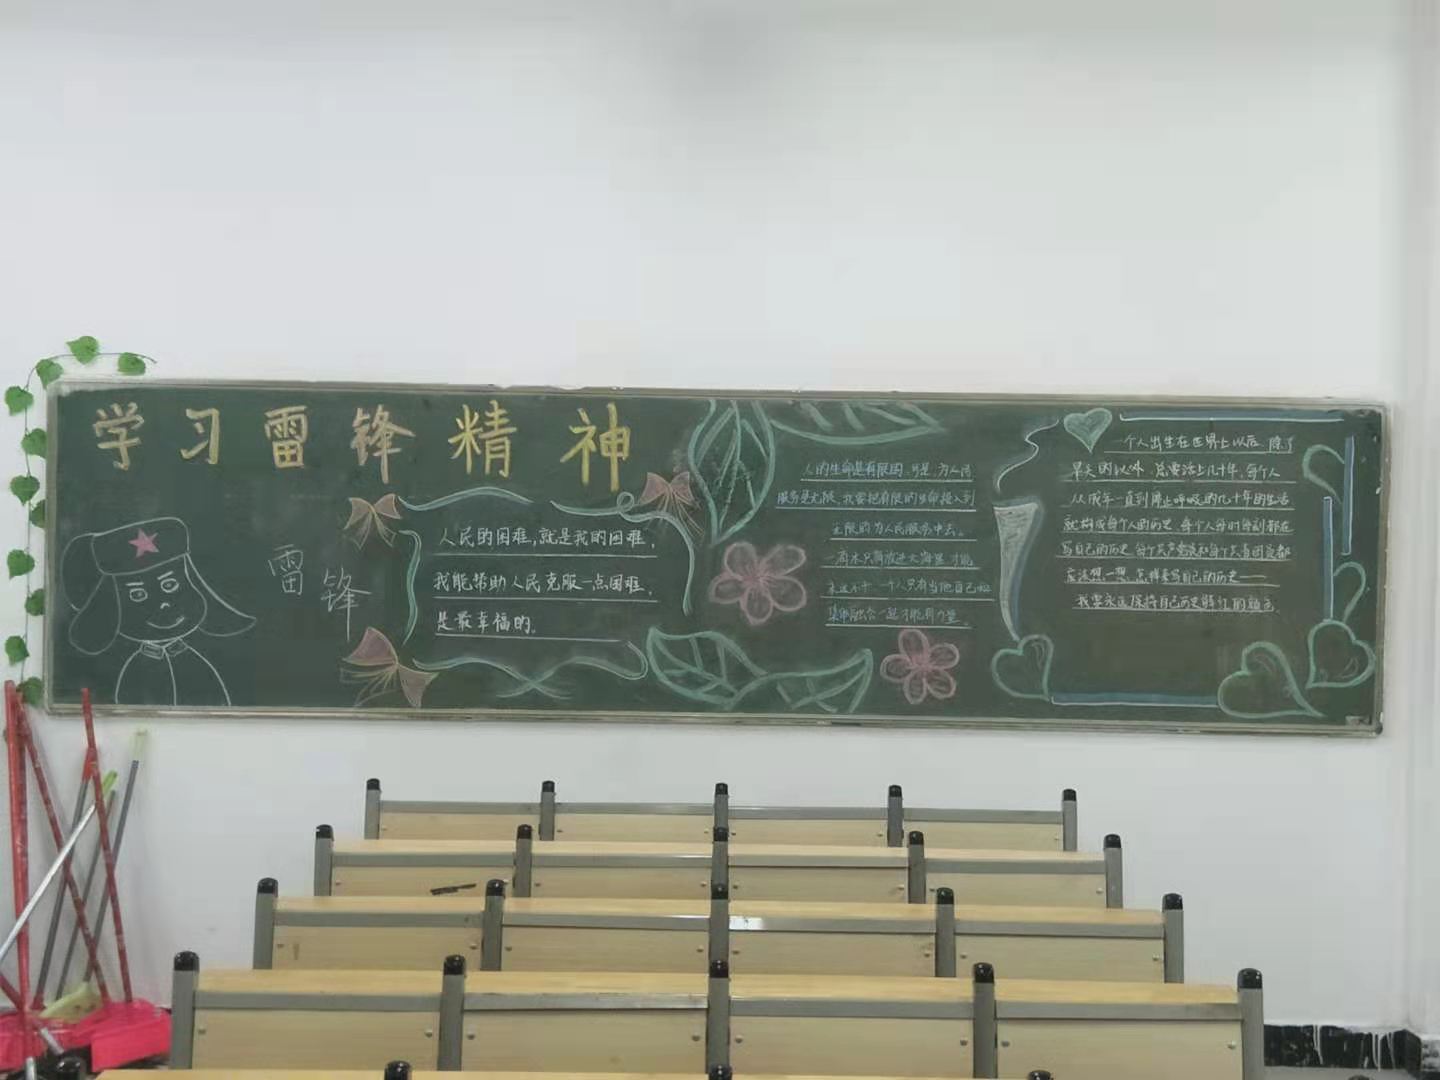 学习雷锋精神
雷锋
人民的困难,就是我的困难,
我能帮助人民克服一点困难,
是最幸福的。
人的生命是有限的,可是,为人民
服务是无限,我要把有限的生命投入到
无限的为人民服务中去。
一滴水只有放进大海里才能
永远不干 一个人只有当他自己和
集体融合一起才能有力量。
一个人出生在世界上以后 除了
早夭的以外,总要活上几十年,每个人
从成年一直到停止呼吸的几十年的生活
就构成每个人的历史 每个人每时每刻都在
写自己的历史 每个共产党员和每个共青团员都
应该想一想,怎样来写自己的历史——
我要永远保持自己历史鲜红的颜色